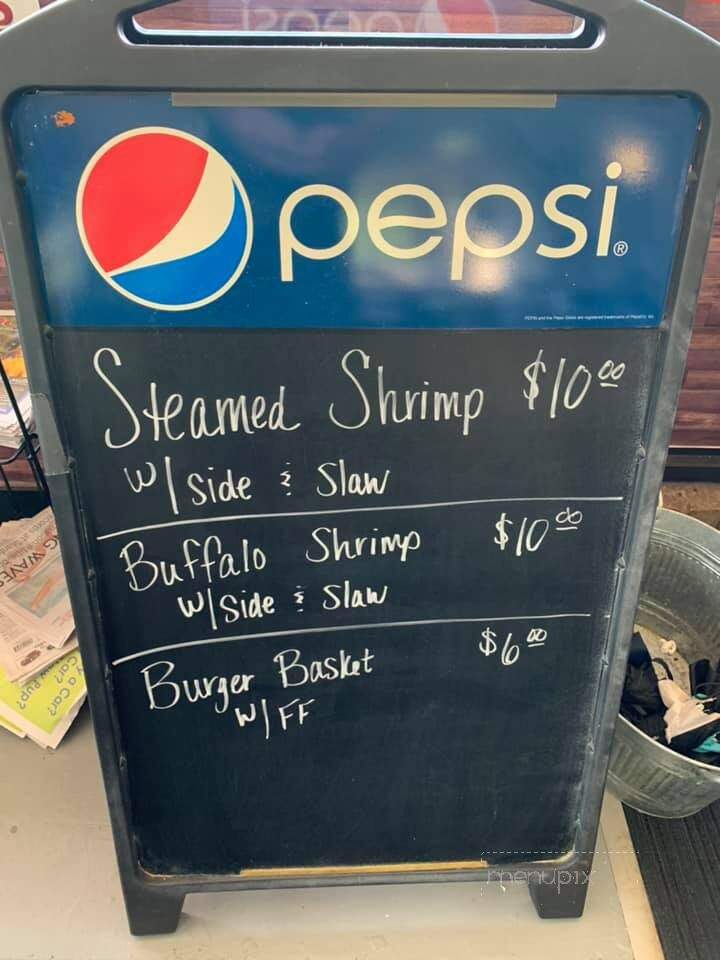 pepsi®
Steamed Shrimp $10.00
w/ side & Slaw
Buffalo Shrimp $10.00
w/ Side & Slaw
Burger Basket $6.00
w/ FF
G WAVES
y a Car?
Car?
menupix